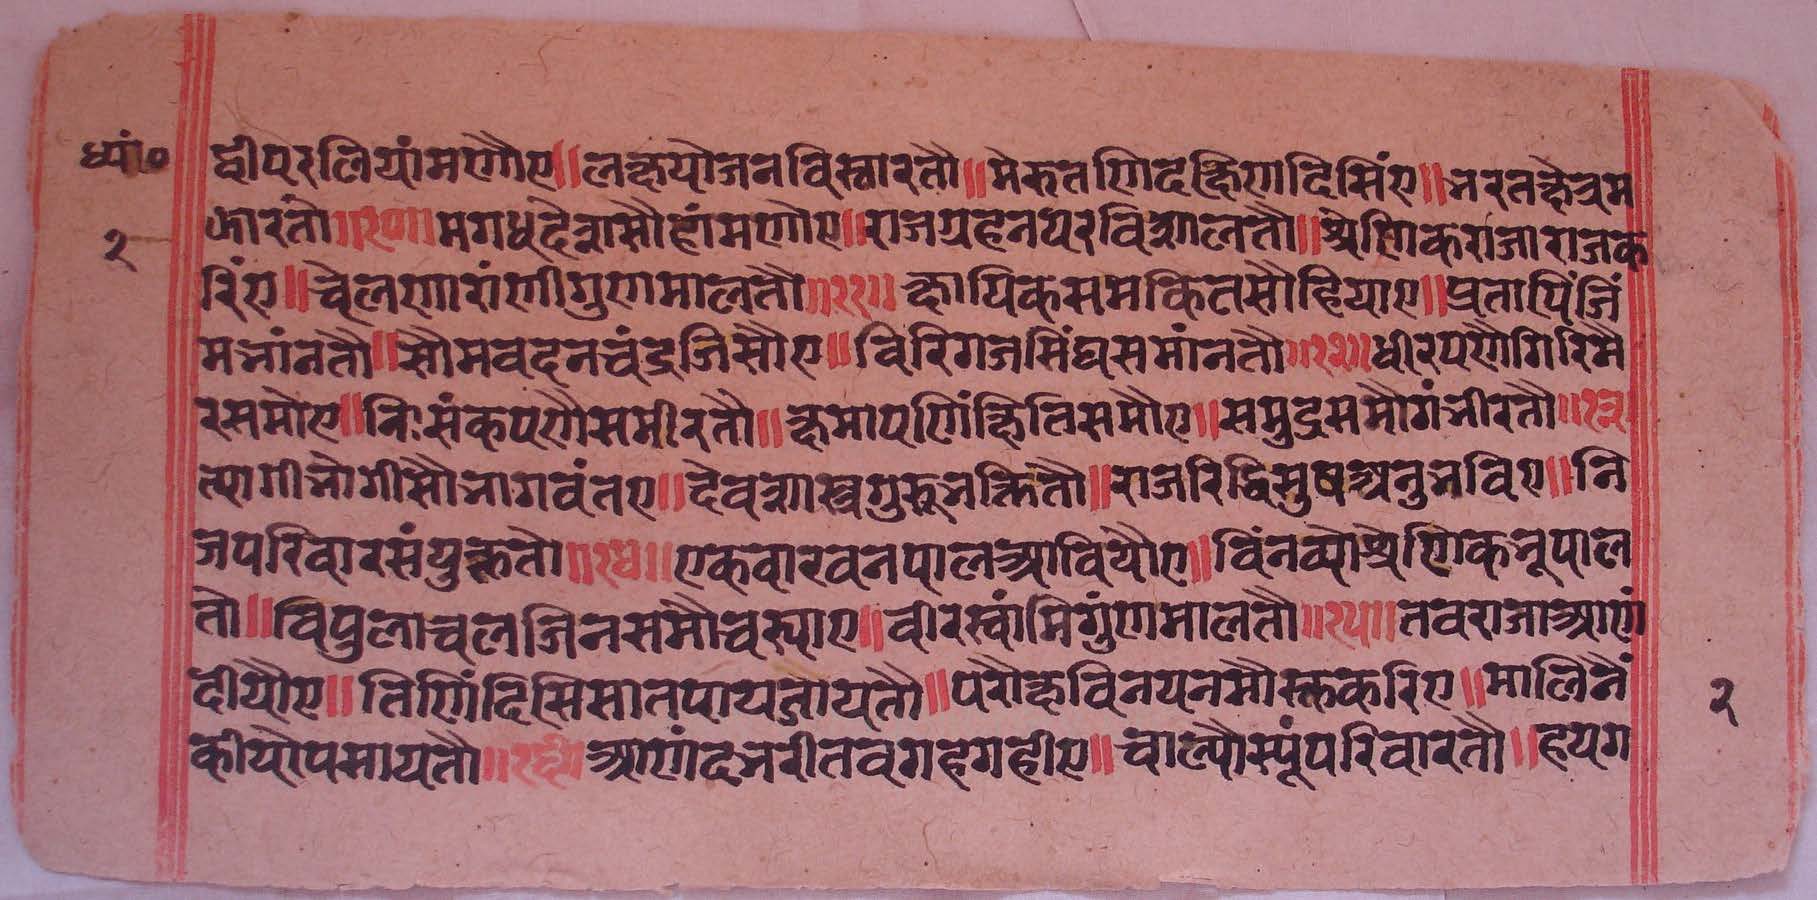 ध्यां०
द्वीपरलियांमणौए॥लक्षयोजनविस्तारतौ॥मेरुतणिदक्षिणदिसिंए॥भरतक्षेत्रम
झारतौ॥१०॥मगधदेशसौहांमणोए॥राजग्रहनयरविशालतौ॥श्रेणिकराजाराजक
२
रिंए॥चेलणारांणीगुणमालतौ॥११॥क्षायिकसमकितसौहियाए॥प्रतापिंजिं
मभांनतौ॥सौमवदनचंद्रजिसौए॥विरिगजसिंघसमांनतौ॥१२॥धीरपणौगिरिमे
रसमोए॥निःसंकपणौसमीरतौ॥क्षमापणिंक्षितिसमौए॥समुद्रसमौगंभीरतौ॥१३
त्यागीभोगीसौभागवंतए॥देवशास्त्रगुरूभक्तितौ॥राजरिद्धिसुषअनुभविए॥नि
जपरिवारसंयुक्ततो॥१४॥एकवारवनपालआवियौए॥विंनव्योश्रेणिकभूपाल
तो॥विपुलाचलजिनसमौवस्याए॥वीरस्वांमिगुंणमालतौ॥१५॥तवराजाआणं
दीयौए॥तिणिंदिसिसातपायजायतौ॥परोक्षविनयनमौस्क्तकरिए॥मालिनें
२
कीयोपसायतौ॥१६॥आणंदभरीतवगहगहीए॥चाल्यौस्यूंपरिवारतौ॥हयग